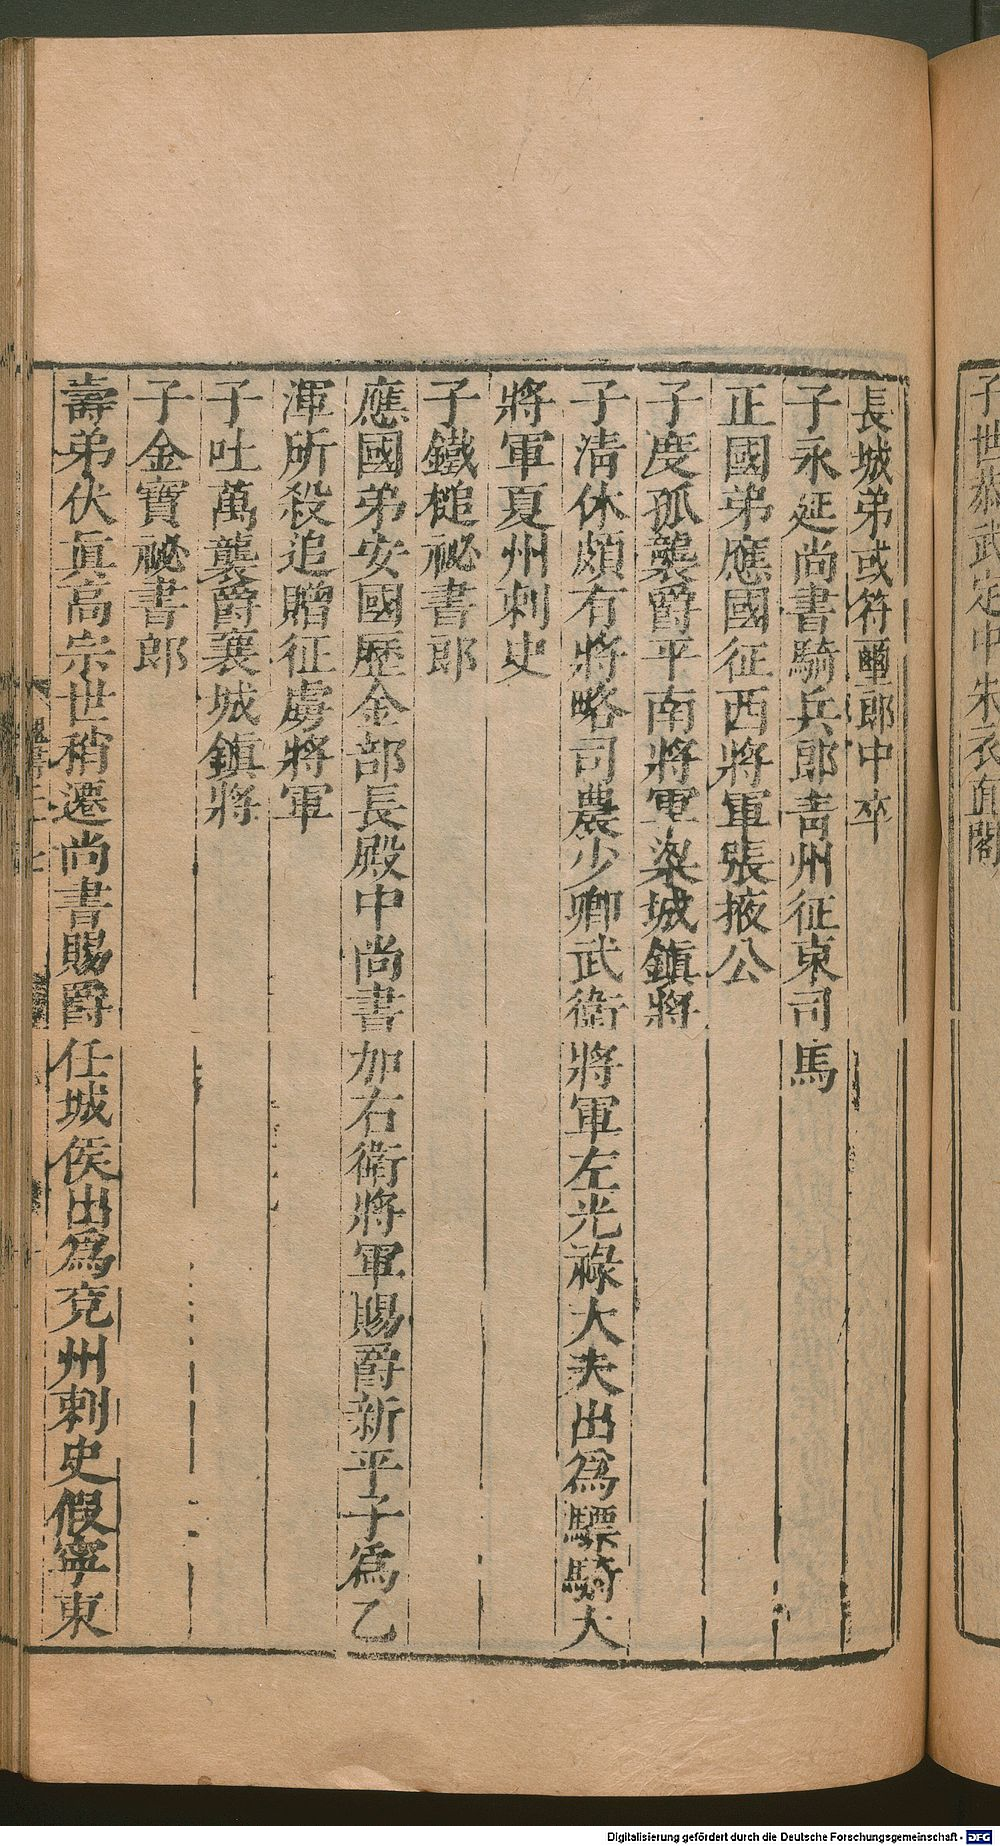 子世恭武定中朱衣直閤
長城弟或符璽郎中卒
子永延尚書騎兵郎青州征東司馬
正國弟應國征西將軍張掖公
子度孤襲爵平南將軍梁城鎮將
子清休頗有將略司農少卿武衛將軍左光祿大夫出爲驃騎大
將軍夏州刺史
子鐵槌祕書郎
應國弟安國歷金部長殿中尚書加右衛將軍賜爵新平子爲乙
渾所殺追贈征虜將軍
子吐萬襲爵襄城鎮將
子金寶祕書郎
壽弟伏眞高宗世稍遷尚書賜爵任城侯出爲兗州刺史假寧東
Digitalisierung gefördert durch die Deutsche Forschungsgemeinschaft - DFG